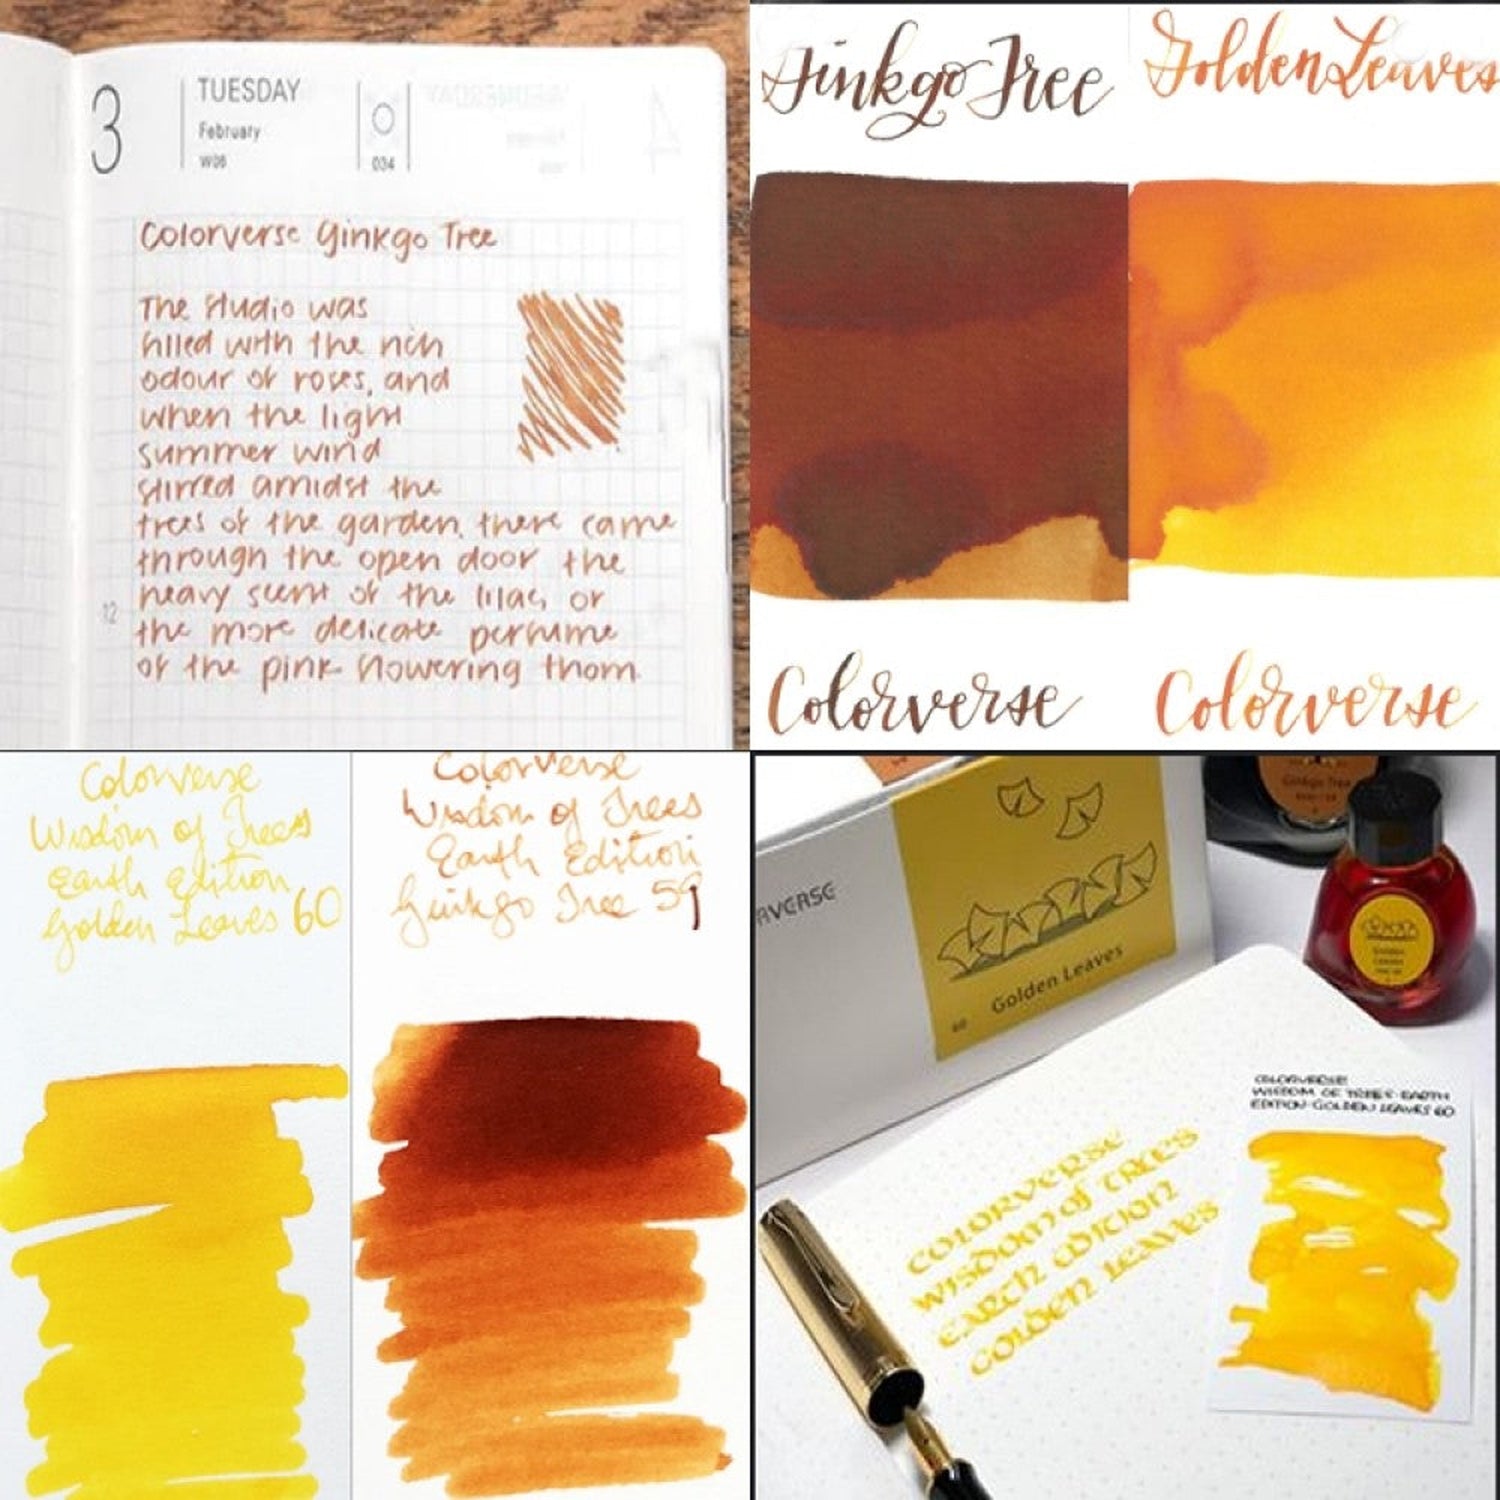 3
TUESDAY
February
W06
034
Colorverse Ginkgo Tree
The studio was
filled with the rich
odour of roses, and
when the light
summer wind
stirred amidst the
trees of the garden, there came
through the open door the
heavy scent of the lilac, or
the more delicate perfume
of the pink flowering thorn.
12
Ginkgo Tree
Golden Leaves
Colorverse
Colorverse
Colorverse
Wisdom of Trees
Earth Edition
Golden Leaves 60
Colorverse
Wisdom of Trees
Earth Edition
Ginkgo Tree 59
RVERSE
60 Golden Leaves
Ginkgo Tree
COLORVERSE
WISDOM OF TREES EARTH
EDITION-GOLDEN LEAVES 60
COLORVERSE
WISDOM of TREES
EARTH EDITION
GOLDEN LEAVES